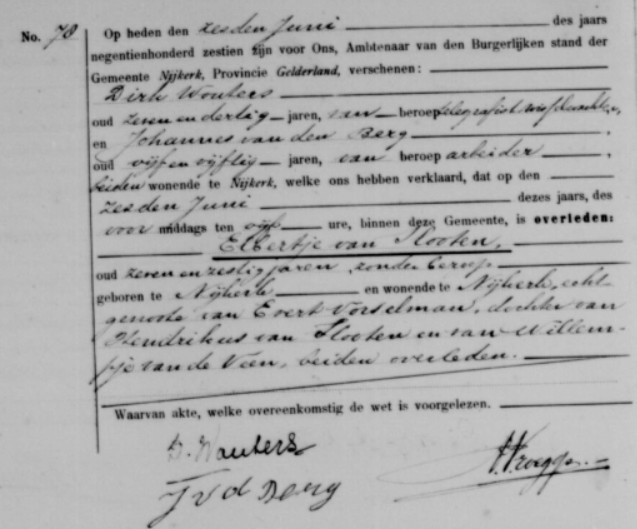 No. 70 Op heden den zesden Juni des jaars
negentienhonderd zestien zijn voor Ons, Ambtenaar van den Burgerlijken stand der
Gemeente Nijkerk, Provincie Gelderland, verschenen:
Dirk Wouters
oud zeven en dertig jaren, van beroep telegrafist
en Johannes van den Berg,
oud vijf en vijftig jaren, van beroep arbeider,
beiden wonende te Nijkerk, welke ons hebben verklaard, dat op den
zesden Juni dezes jaars, des
voor middags ten vijf ure, binnen deze Gemeente, is overleden:
Elbertje van Slooten,
oud zeven en zestig jaren, zonder beroep
geboren te Nijkerk en wonende te Nijkerk, echt-
genoote van Evert Vorselman, dochter van
Hendrikus van Slooten en van Willem-
pje van de Veen, beiden overleden.
Waarvan akte, welke overeenkomstig de wet is voorgelezen.
D. Wouters
J v d Berg